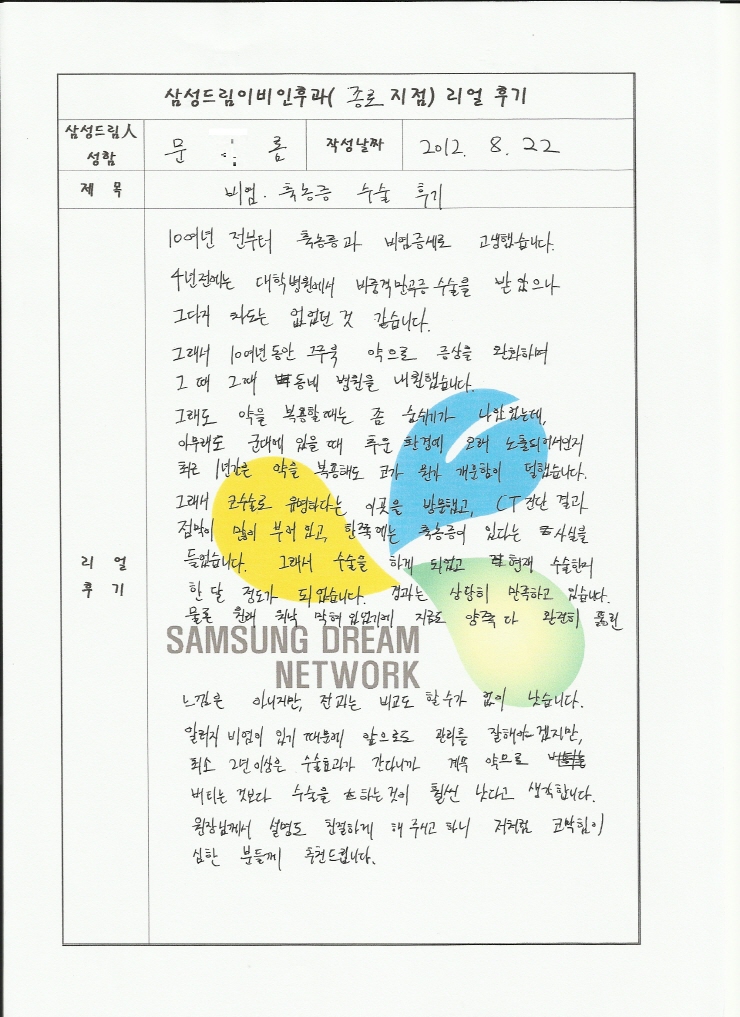 삼성드림이비인후과( 종로 지점) 리얼 후기
삼성드림人
성함
문 롬
작성날짜
2012. 8. 22
제 목
비염. 축농증 수술 후기
리 얼
후 기
10여년 전부터 축농증과 비염증세로 고생했습니다.
4년전에는 대학병원에서 비중격만곡증 수술을 받았으나
그다지 차도는 없었던 것 같습니다.
그래서 10여년동안 그주욱 약으로 증상을 완화하며
그 때 그때 동네 병원을 내원했습니다.
그래도 약을 복용할때는 좀 숨쉬기가 나았었는데,
아무래도 군대에 있을 때 추운 환경에 오래 노출되어서인지
최근 1년간은 약을 복용해도 코가 뭔가 개운함이 덜했습니다.
그래서 코수술로 유명하다는 이곳을 방문했고, CT진단 결과
점막이 많이 부어 있고, 한쪽에는 축농증이 있다는 사실을
들었습니다. 그래서 수술을 하게 되었고 현재 수술한지
한 달 정도가 되었습니다. 결과는 상당히 만족하고 있습니다.
물론 원래 워낙 막혀있었기에 지금도 양쪽 다 완전히 뚫린
SAMSUNG DREAM
NETWORK
느낌은 아니지만, 전과는 비교도 할수가 없이 낫습니다.
알러지 비염이 있기 때문에 앞으로도 관리를 잘해야겠지만,
최소 2년이상은 수술효과가 간다니까 계속 약으로
버티는 것보다 수술을 하는것이 훨씬 낫다고 생각합니다.
원장님께서 설명도 친절하게 해 주시고 하니 저처럼 코막힘이
심한 분들께 추천드립니다.